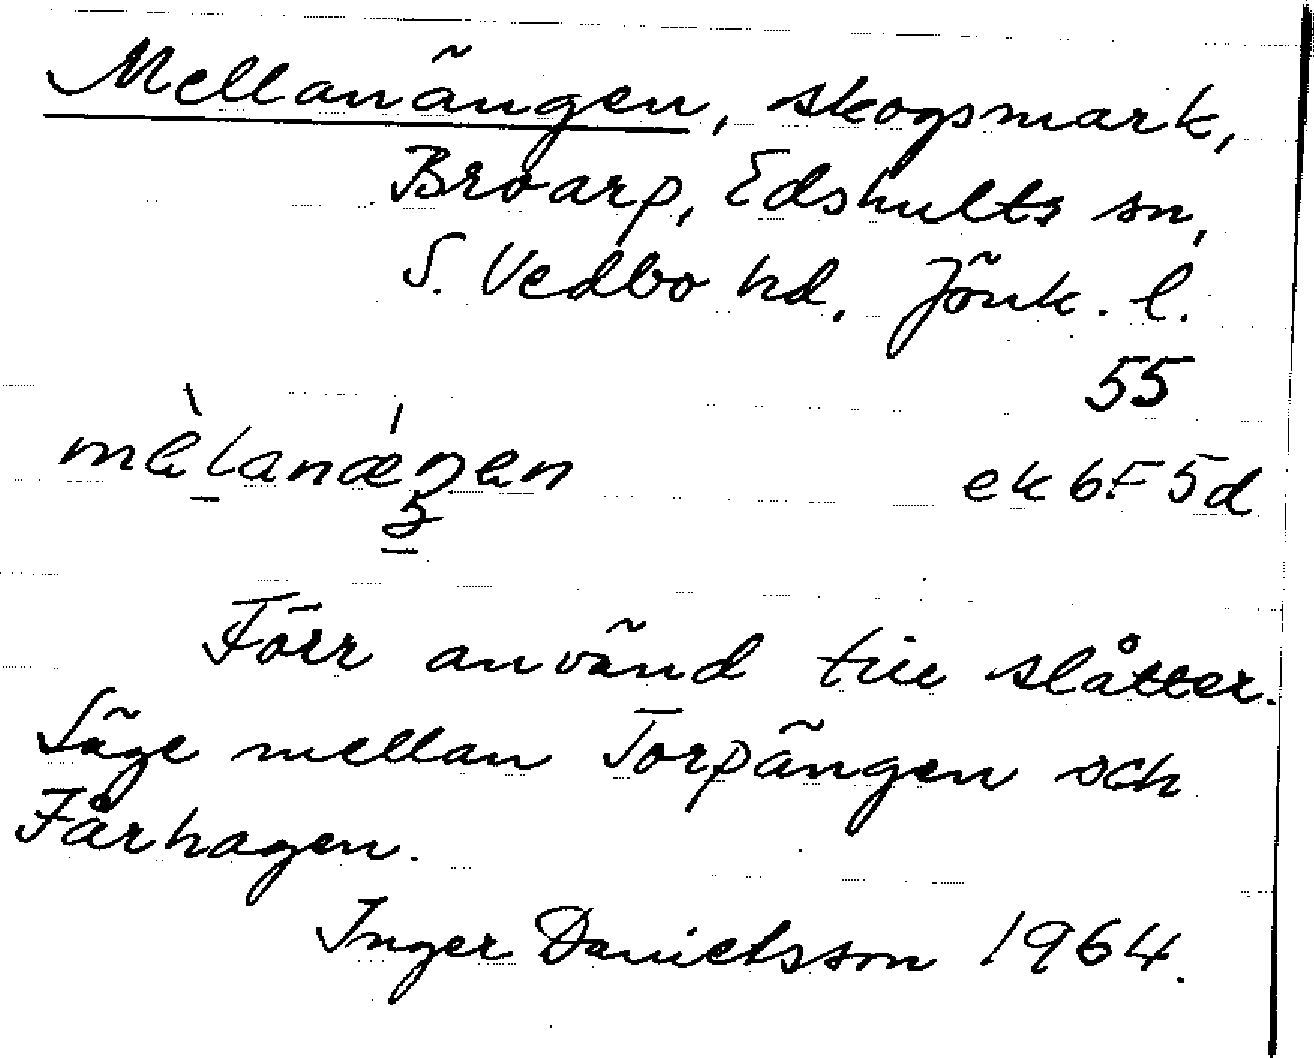 Mellanängen, skogsmark,
Broarp, Edshults sn,
S. Vedbo hd. Jönk. l.
55
ek 6F 5d
Förr använd till slåtter.
Läge mellan Torpängen och
Fårhagen.
Inger Danielsson 1964.